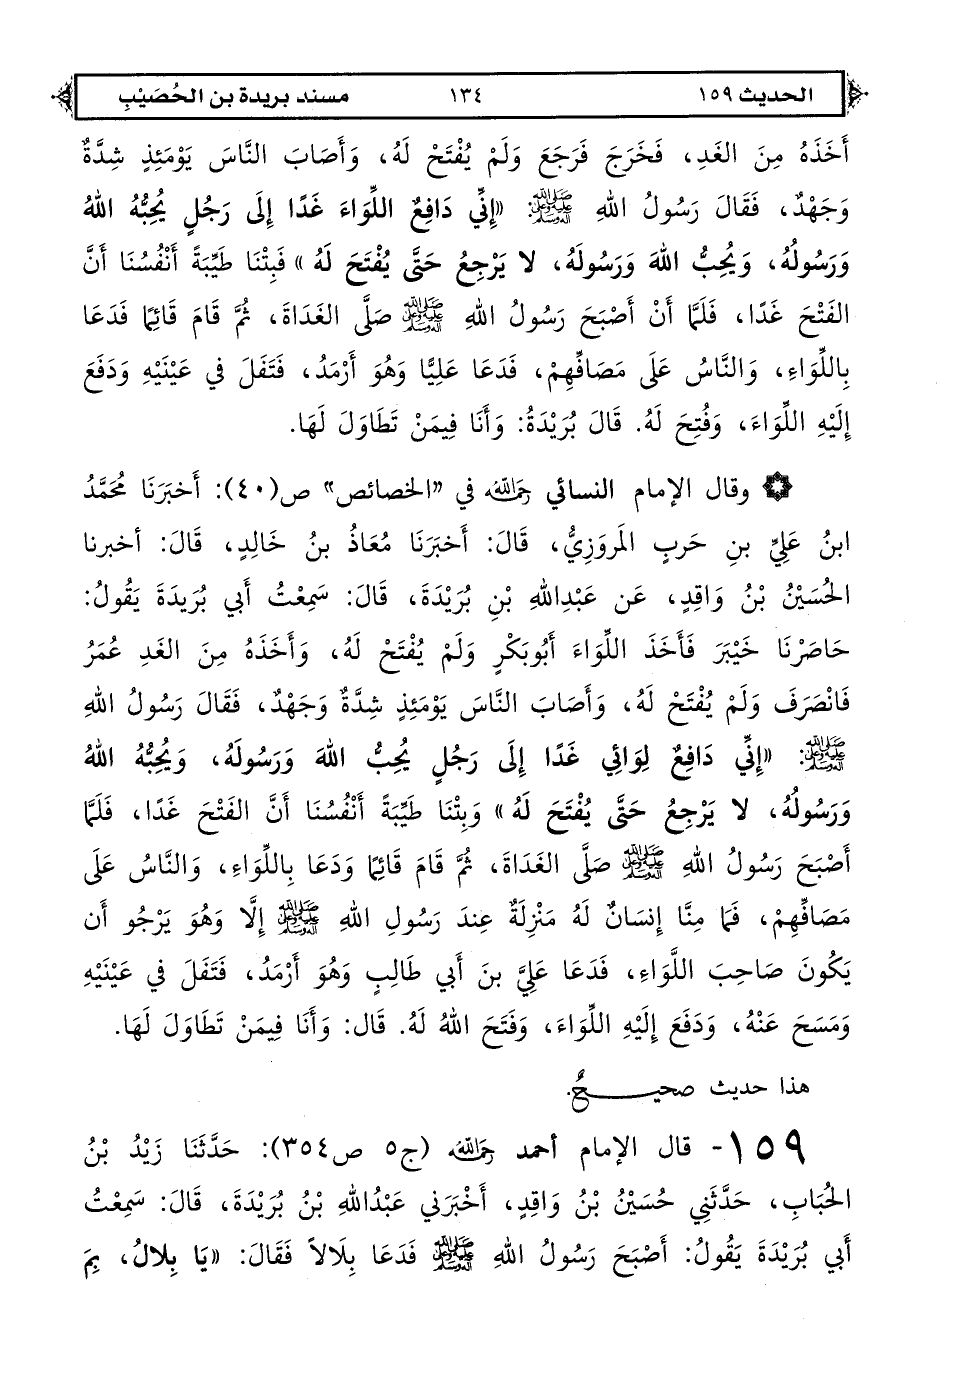 الحديث ١٥٩ ١٣٤ مسند بريدة بن الحُصَيْبِ
أَخَذَهُ مِنَ الغَدِ، فَخَرَجَ فَرَجَعَ وَلَمْ يُفْتَحْ لَهُ، وَأَصَابَ النَّاسَ يَوْمَئِذٍ شِدَّةٌ
وَجَهْدٌ، فَقَالَ رَسُولُ اللهِ ﷺ: «إِنِّي دَافِعٌ اللِّوَاءَ غَدًا إِلَى رَجُلٍ يُحِبُّهُ اللهُ
وَرَسُولُهُ، وَيُحِبُّ اللهَ وَرَسُولَهُ، لا يَرْجِعُ حَتَّى يُفْتَحَ لَهُ» فَبِتْنَا طَيِّبَةً أَنْفُسُنَا أَنَّ
الفَتْحَ غَدًا، فَلَمَّا أَنْ أَصْبَحَ رَسُولُ اللهِ ﷺ صَلَّى الغَدَاةَ، ثُمَّ قَامَ قَائِمًا فَدَعَا
بِاللِّوَاءِ، وَالنَّاسُ عَلَى مَصَافِّهِمْ، فَدَعَا عَلِيًّا وَهُوَ أَرْمَدُ، فَتَفَلَ فِي عَيْنَيْهِ وَدَفَعَ
إِلَيْهِ اللِّوَاءَ، وَفُتِحَ لَهُ. قَالَ بُرَيْدَةُ: وَأَنَا فِيمَنْ تَطَاوَلَ لَهَا.
وقال الإمام النسائي رحمه الله في «الخصائص» ص(٤٠): أَخبَرَنَا مُحَمَّدُ
ابنُ عَلِيِّ بنِ حَربٍ المَروَزِيُّ، قَالَ: أَخبَرَنَا مُعَاذُ بنُ خَالِدٍ، قَالَ: أخبرنا
الحُسَيْنُ بْنُ وَاقِدٍ، عَن عَبْدِاللهِ بْنِ بُرَيْدَةَ، قَالَ: سَمِعْتُ أَبِي بُرَيدَةَ يَقُولُ:
حَاصَرْنَا خَيْبَرَ فَأَخَذَ اللِّوَاءَ أَبُوبَكْرٍ وَلَمْ يُفْتَحْ لَهُ، وَأَخَذَهُ مِنَ الغَدِ عُمَرُ
فَانْصَرَفَ وَلَمْ يُفْتَحْ لَهُ، وَأَصَابَ النَّاسَ يَوْمَئِذٍ شِدَّةٌ وَجَهْدٌ، فَقَالَ رَسُولُ اللهِ
ﷺ: «إِنِّي دَافِعٌ لِوَائِي غَدًا إِلَى رَجُلٍ يُحِبُّ اللهَ وَرَسُولَهُ، وَيُحِبُّهُ اللهُ
وَرَسُولُهُ، لا يَرْجِعُ حَتَّى يُفْتَحَ لَهُ» وَبِتْنَا طَيِّبَةً أَنْفُسُنَا أَنَّ الفَتْحَ غَدًا، فَلَمَّا
أَصْبَحَ رَسُولُ اللهِ ﷺ صَلَّى الغَدَاةَ، ثُمَّ قَامَ قَائِمًا وَدَعَا بِاللِّوَاءِ، وَالنَّاسُ عَلَى
مَصَافِّهِمْ، فَمَا مِنَّا إِنسَانٌ لَهُ مَنْزِلَةٌ عِندَ رَسُولِ اللهِ ﷺ إِلَّا وَهُوَ يَرْجُو أَن
يَكُونَ صَاحِبَ اللَّوَاءِ، فَدَعَا عَلِيَّ بنَ أَبي طَالِبٍ وَهُوَ أَرْمَدُ، فَتَفَلَ فِي عَيْنَيْهِ
وَمَسَحَ عَنْهُ، وَدَفَعَ إِلَيْهِ اللِّوَاءَ، وَفَتَحَ اللهُ لَهُ. قَال: وَأَنَا فِيمَنْ تَطَاوَلَ لَهَا.
هذا حديث صحيـــــــحٌ.
١٥٩- قال الإمام أحمد رحمه الله (ج٥ ص٣٥٤): حَدَّثَنَا زَيْدُ بْنُ
الحُبَابِ، حَدَّثَنِي حُسَيْنُ بْنُ وَاقِدٍ، أَخْبَرَنِي عَبْدُاللهِ بْنُ بُرَيْدَةَ، قَالَ: سَمِعْتُ
أَبِي بُرَيْدَةَ يَقُولُ: أَصْبَحَ رَسُولُ اللهِ ﷺ فَدَعَا بِلَالاً فَقَالَ: «يَا بِلالُ، بِمَ